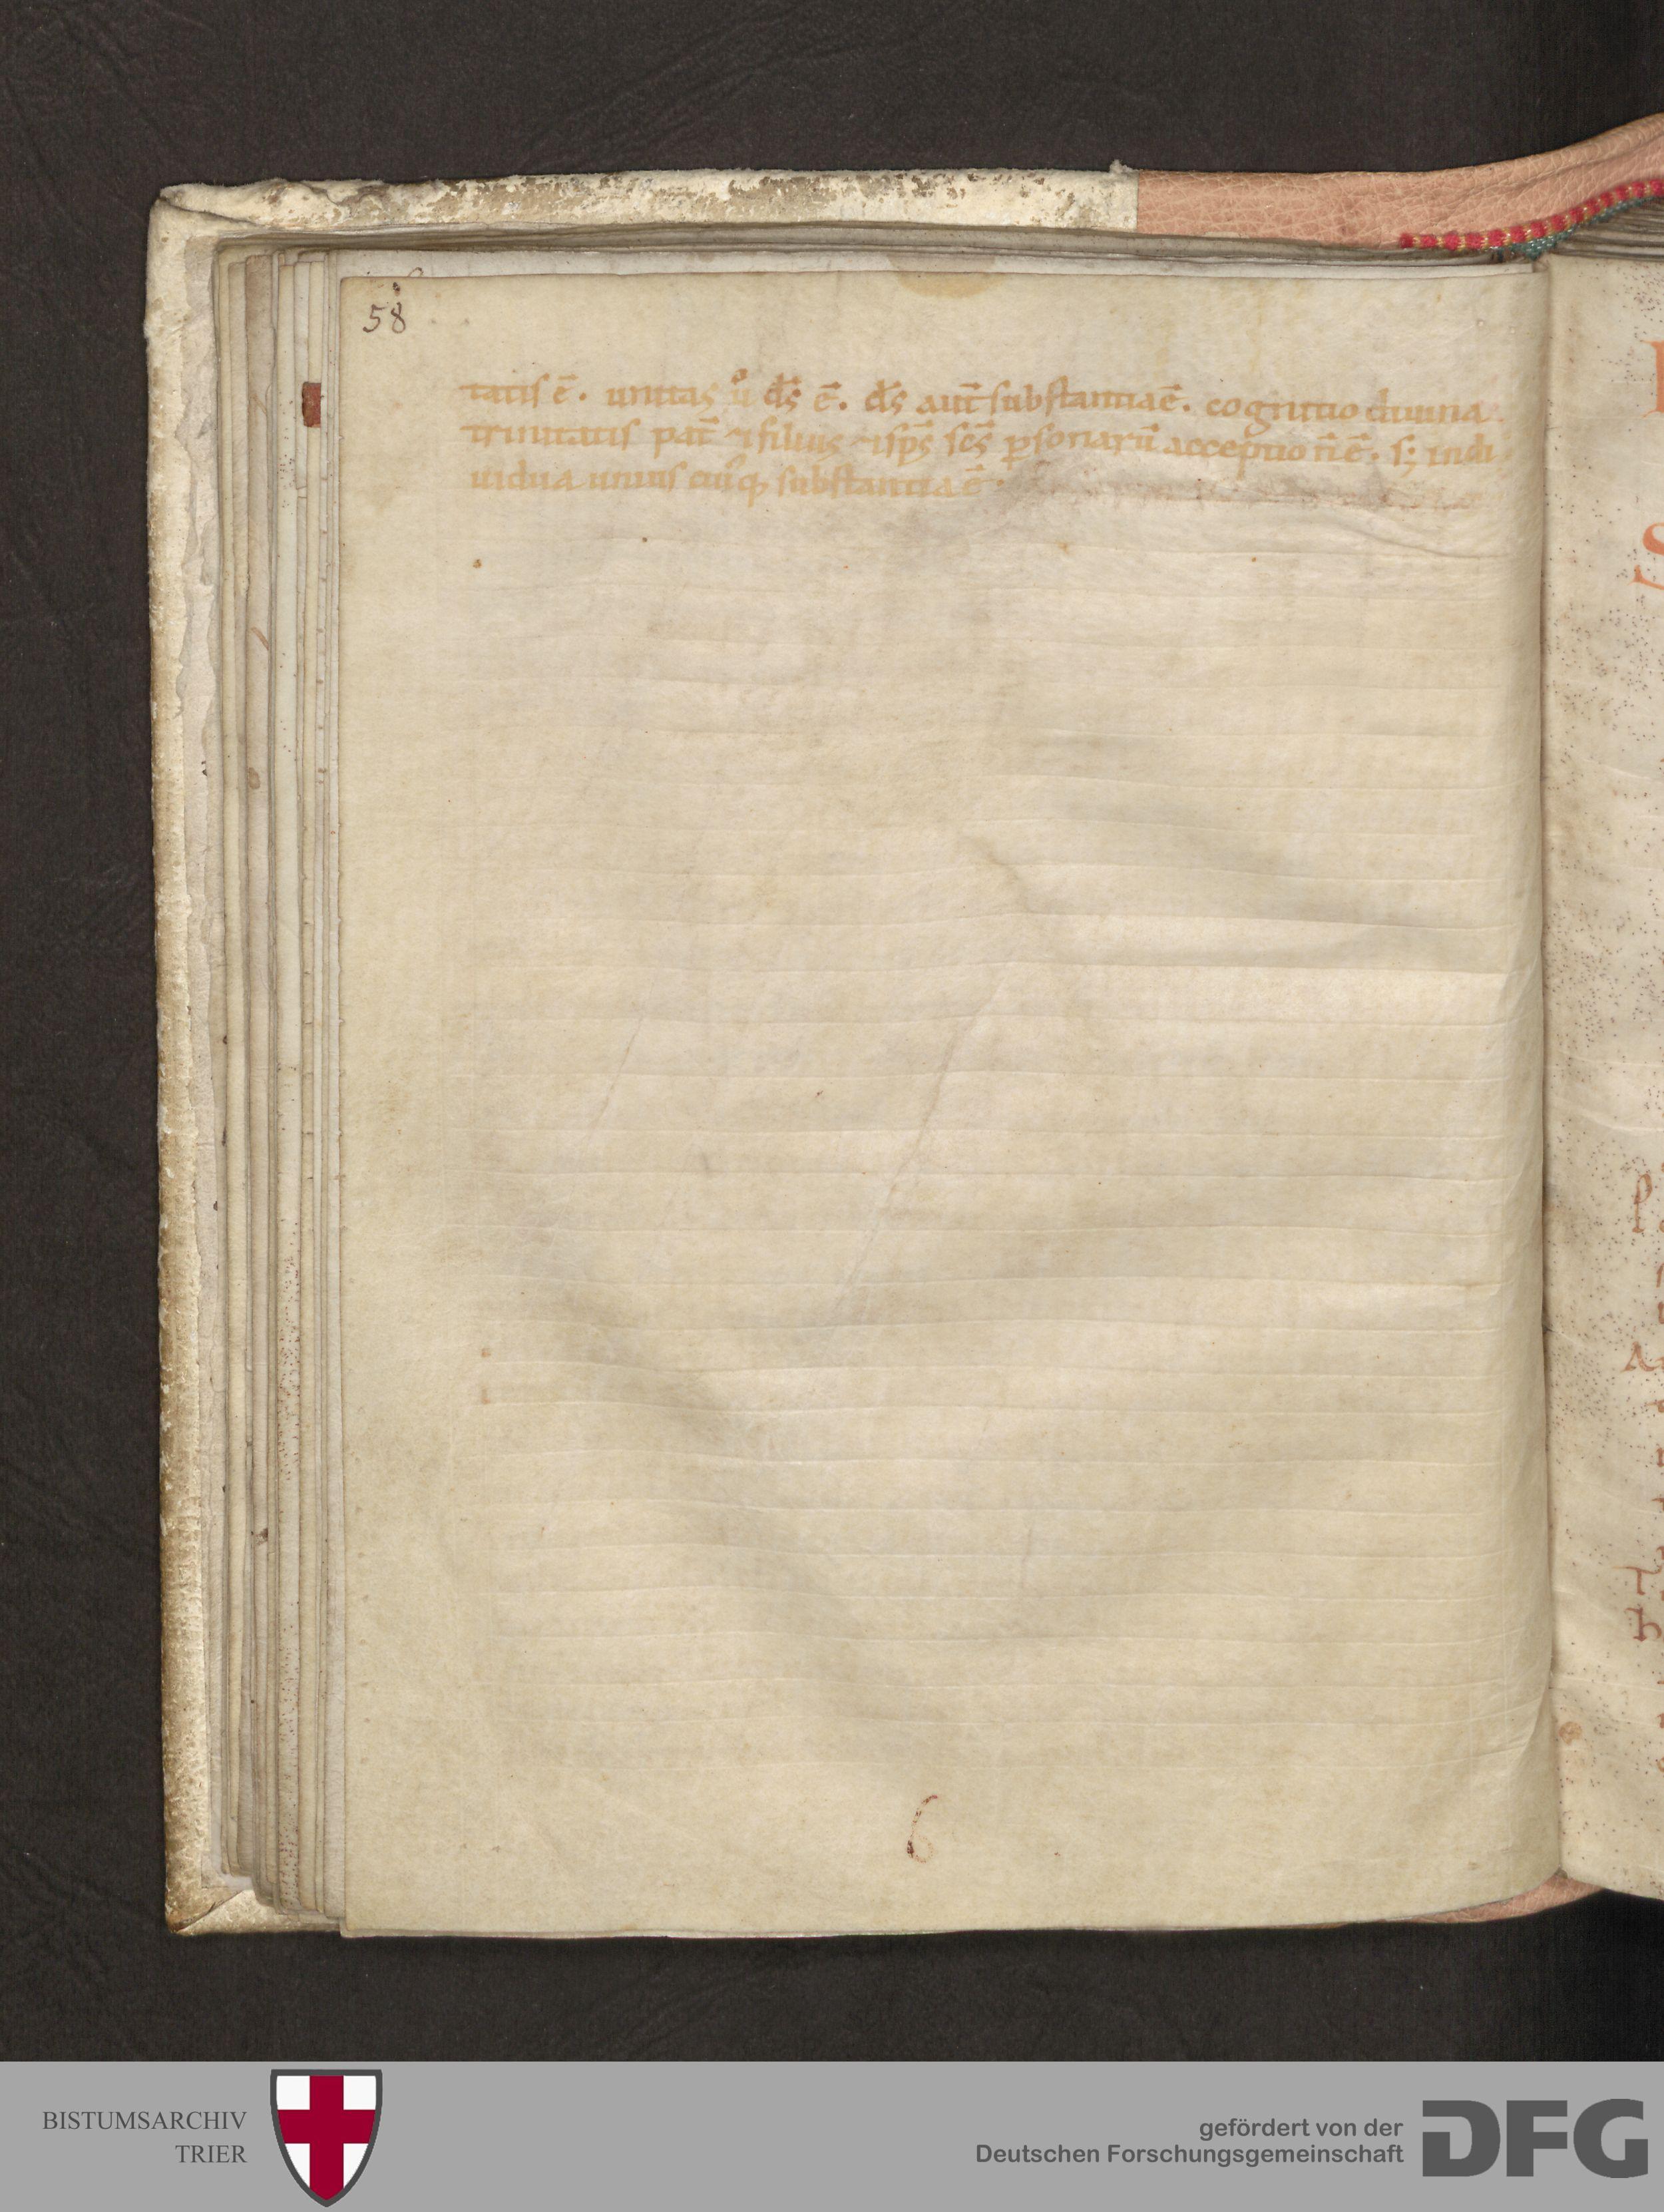 58
tatis ē. unitas ů d̄s ē. d̄s aut̄ substantia ē. cognitio diuina
trinitatis pat̄ & filius & sp̄s sc̄s p̱sonarū acceptio n̄ ē. s; indi
uidua unius cuiꝰq; substantia ē.
6
BISTUMSARCHIV
TRIER
gefördert von der
Deutschen Forschungsgemeinschaft
DFG